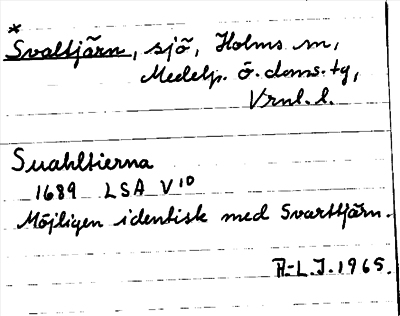 *
Svaltjärn, sjö, Holms sn,
Medelp. ö. doms. tg,
Vrnl. l.
Suahltierna
1689 LSA V10
Möjligen identisk med Svarttjärn.
A-L.J. 1965.